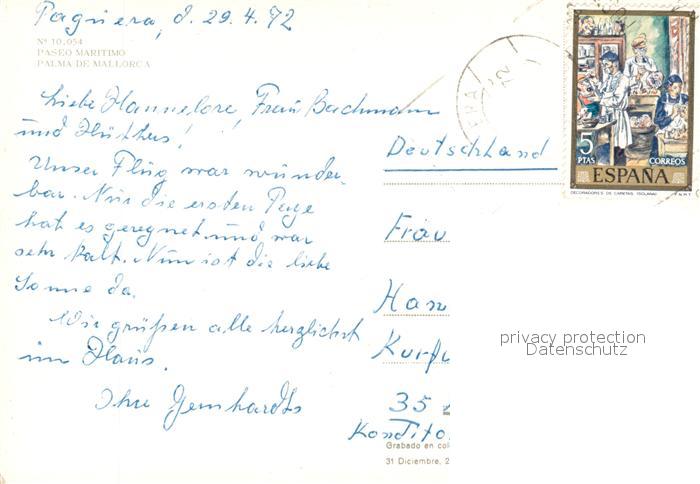 Paguera, d. 29.4.72
Nº 10.054
PASEO MARITIMO
PALMA DE MALLORCA
Liebe Hannelore, Frau Bachmann
und Hüthers!
Unser Flug war wunder-
bar. Nur die ersten Tage
hat es geregnet und war
sehr kalt. Nun ist die liebe
Sonne da.
Wir grüßen alle herzlichst
im Haus.
Ihre Gernhardts
5
PTAS
CORREOS
ESPAÑA
DECORADORES DE CARETAS (SOLANA)
F.N.M.T.
Deutschland
Frau
Han
Kurfu
35
Kondito
Grabado en col
31 Diciembre, 2
privacy protection
Datenschutz